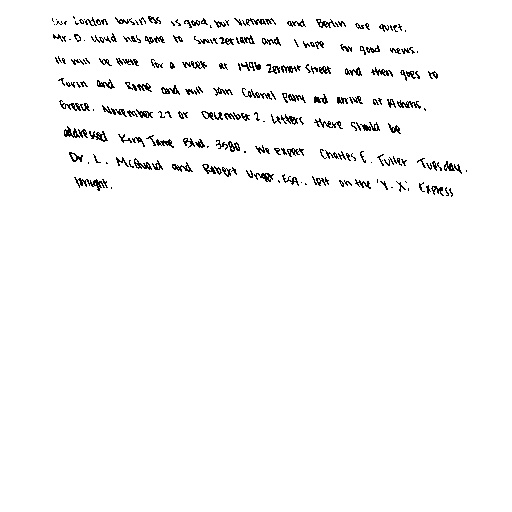 Our London business is good, but Vietnam and Berlin are quiet.
Mr. D. Lloyd has gone to Switzerland and I hope for good news.
He will be there for a week at 1496 Zermott Street and then goes to
Turin and Rome and will join Colonel Parry and arrive at Athens,
Greece, November 27 or December 2. Letters there should be
addressed King James Blvd. 3580. We expect Charles E. Fuller Tuesday.
Dr. L. McQuaid and Robert Unger, Esq., left on the 'Y. X.' Express
tonight.